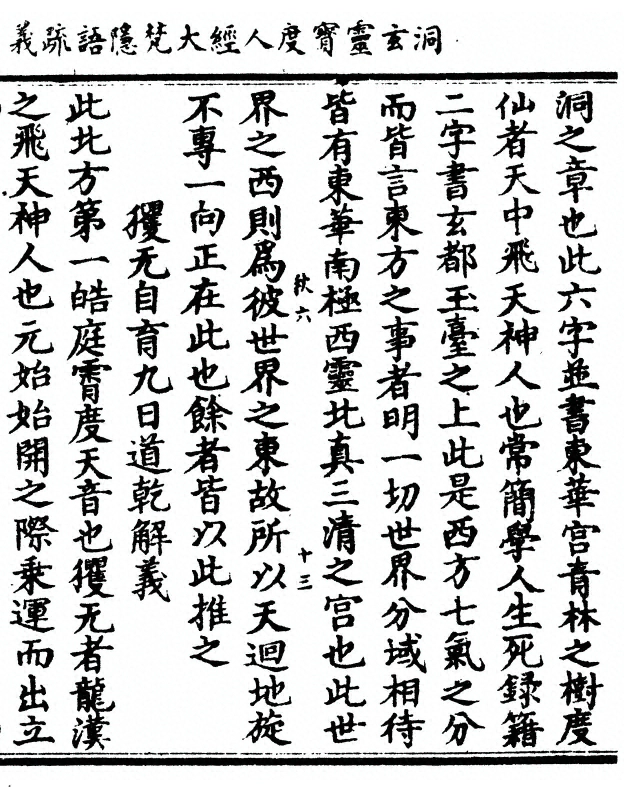 洞玄靈寳度人經大梵隱語疏義
洞之章也此六字並書東華宫青林之樹度
仙者天中飛天神人也常簡學人生死録籍
二字書玄都玉臺之上此是西方七氣之分
而皆言東方之事者明一切世界分域相待
皆有東華南極西靈北真三清之宫也此世
界之西則爲彼世界之東故所以天迴地旋
不專一向正在此也餘者皆以此推之
玃无自育九日道乾解義
此北方第一皓庭霄度天音也玃无者龍漢
之飛天神人也元始始開之際乘運而出立
十三